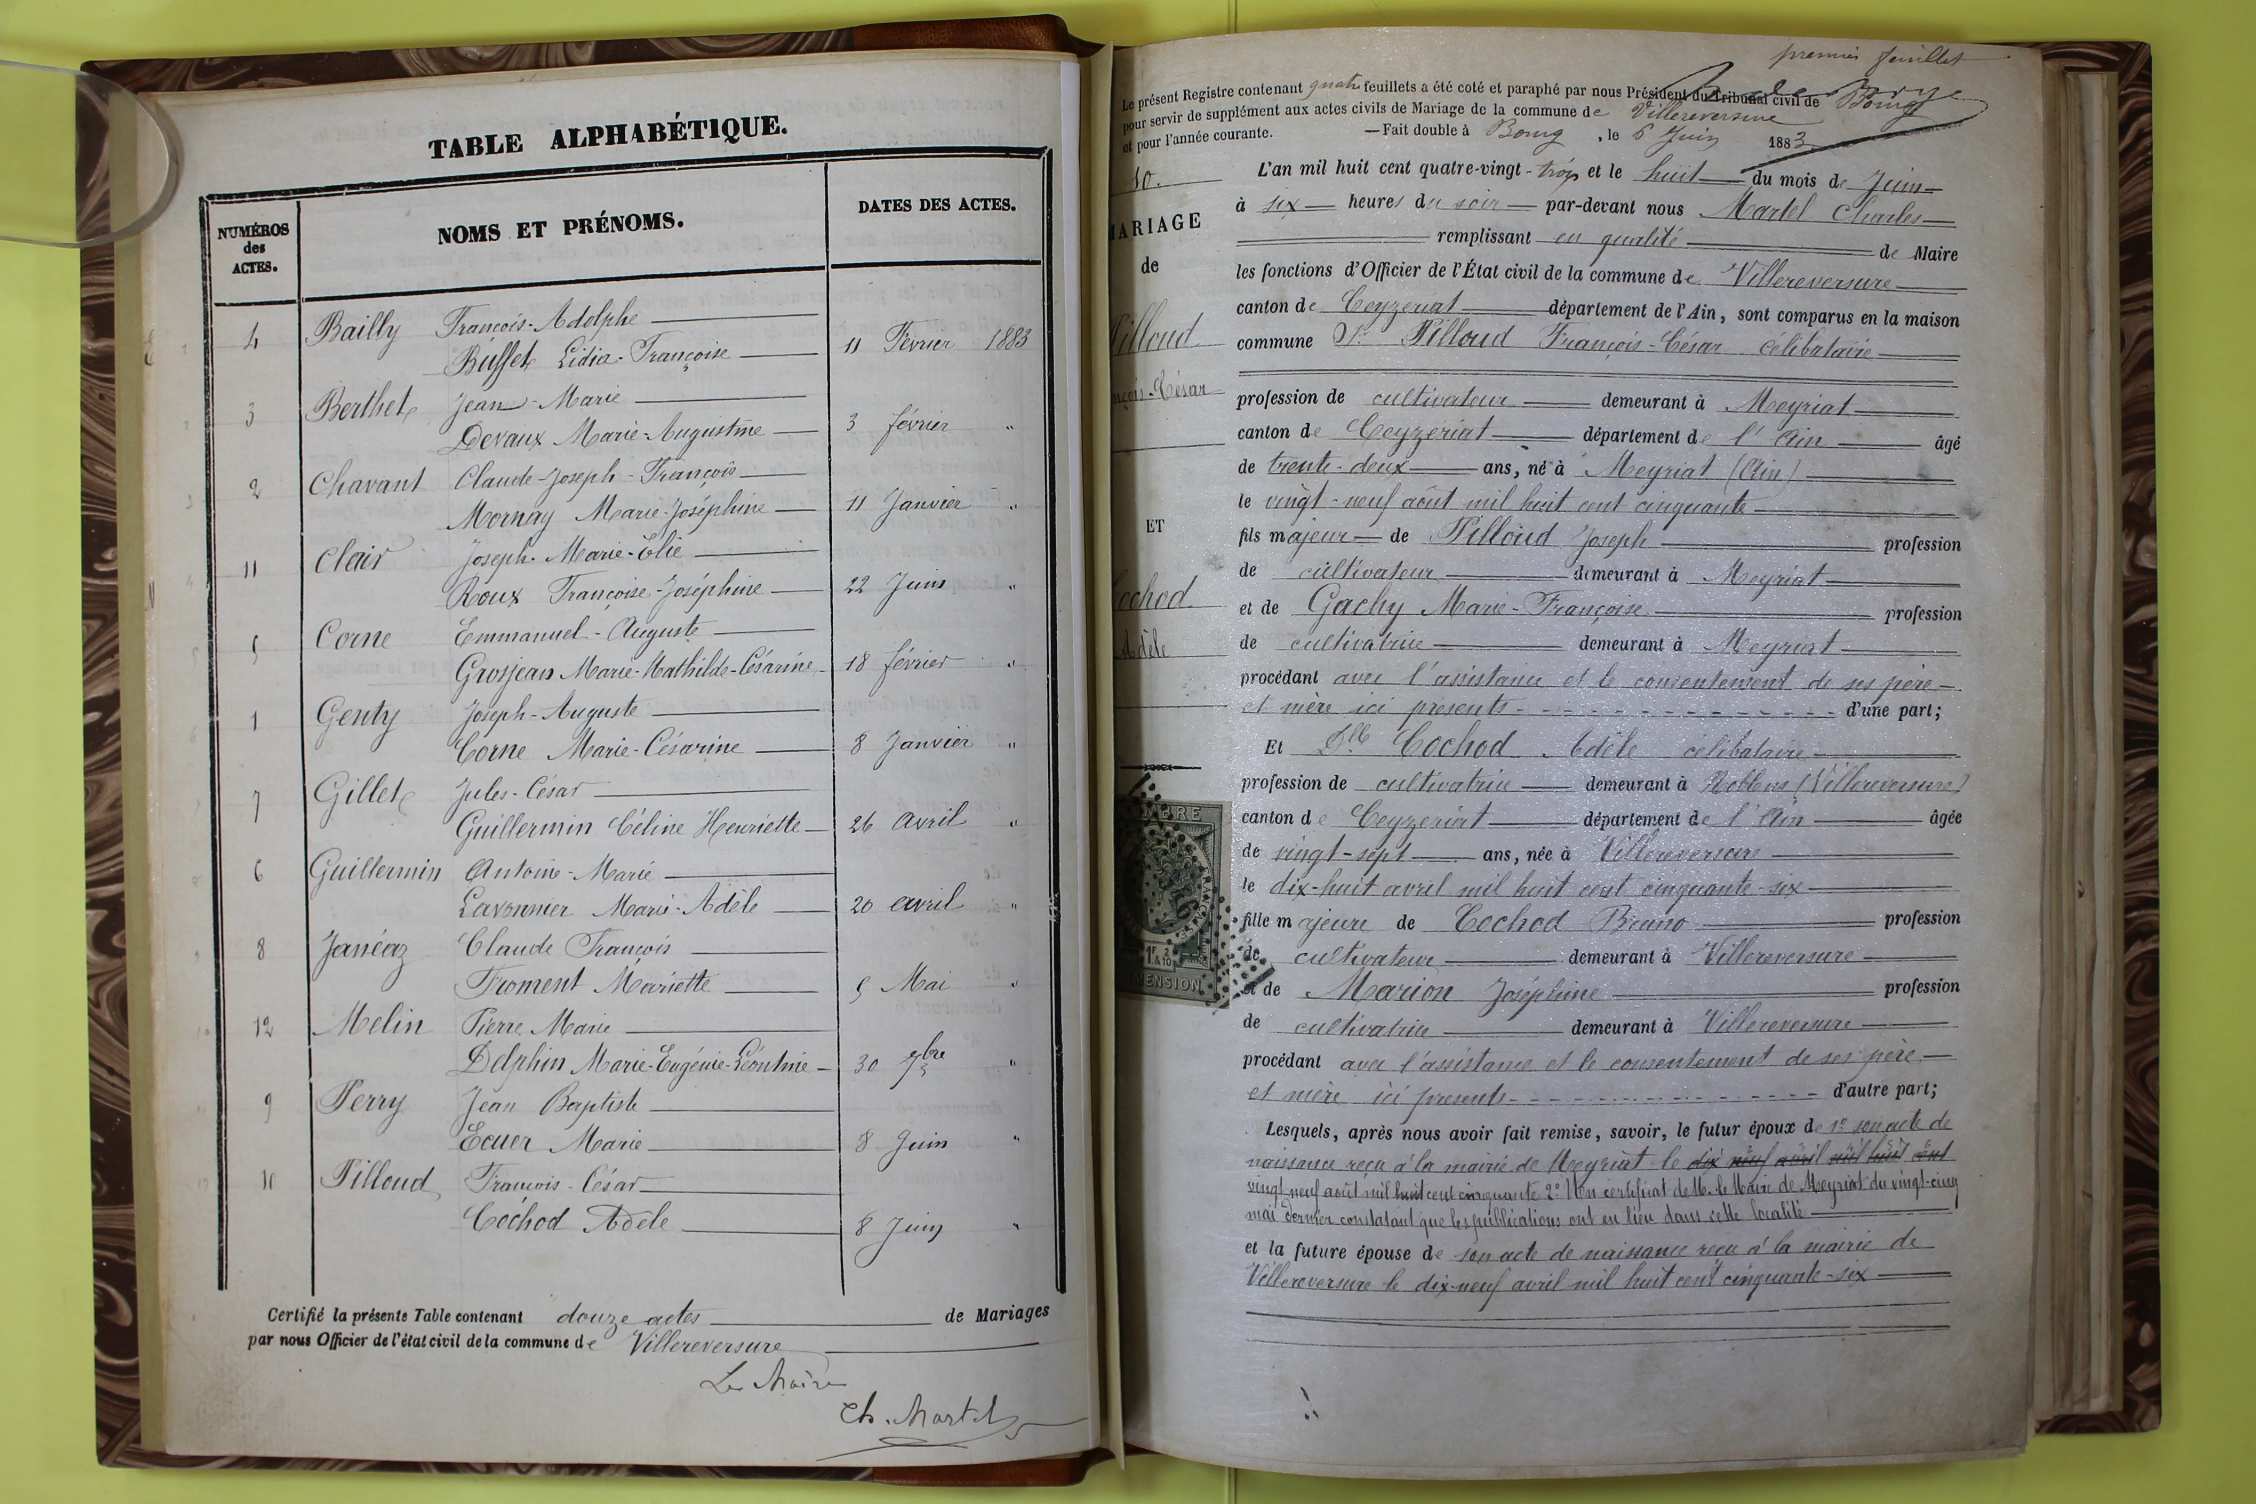 TABLE ALPHABÉTIQUE.
NUMÉROS des ACTES.
NOMS ET PRÉNOMS.
DATES DES ACTES.
4 Bailly François-Adolphe
Buffet Lidia-Françoise 11 Février 1883
3 Berthet Jean-Marie
Devaux Marie-Augustine 3 février "
2 Chavant Claude-Joseph-François
Mornay Marie-Joséphine 11 Janvier "
11 Clair Joseph-Marie-Élie
Roux Françoise-Joséphine 22 Juin "
5 Corne Emmanuel-Auguste
Grosjean Marie-Mathilde-Césarine 18 février "
1 Genty Joseph-Auguste
Corne Marie-Césarine 8 Janvier "
7 Gillet Jules-César
Guillermin Céline Henriette 26 avril "
6 Guillermin Antoine-Marie
Lavonnier Marie-Adèle 20 avril "
8 Janéaz Claude François
Froment Mariette 5 Mai "
12 Melin Pierre Marie
Delphin Marie-Eugénie-Léontine 30 9bre "
9 Perry Jean Baptiste
Ecuer Marie 8 Juin "
10 Pilloud François-César
Cochod Adèle 8 Juin "
Certifié la présente Table contenant douze actes de Mariages
par nous Officier de l'état civil de la commune de Villereversure
Le Maire
Ch. Martel
premier feuillet
Le présent Registre contenant quatre feuillets a été coté et paraphé par nous Président du Tribunal civil de Bourg
pour servir de supplément aux actes civils de Mariage de la commune de Villereversure
et pour l'année courante. — Fait double à Bourg, le 6 Juin 1883
10.
MARIAGE
de
Pilloud
François-César
ET
Cochod
Adèle
L'an mil huit cent quatre-vingt-trois et le huit du mois de Juin
à six heures du soir par-devant nous Martel Charles
remplissant en qualité de Maire
les fonctions d'Officier de l'État civil de la commune de Villereversure
canton de Ceyzeriat département de l'Ain, sont comparus en la maison
commune Sr Pilloud François-César célibataire
profession de cultivateur demeurant à Meyriat
canton de Ceyzeriat département de l'Ain âgé
de trente-deux ans, né à Meyriat (Ain)
le vingt-neuf août mil huit cent cinquante
fils majeur de Pilloud Joseph profession
de cultivateur demeurant à Meyriat
et de Gachy Marie-Françoise profession
de cultivatrice demeurant à Meyriat
procédant avec l'assistance et le consentement de ses père
et mère ici présents d'une part;
Et Dlle Cochod Adèle célibataire
profession de cultivatrice demeurant à Noblens (Villereversure)
canton de Ceyzeriat département de l'Ain âgée
de vingt-sept ans, née à Villereversure
le dix-huit avril mil huit cent cinquante-six
fille majeure de Cochod Bruno profession
de cultivateur demeurant à Villereversure
et de Marion Joséphine profession
de cultivatrice demeurant à Villereversure
procédant avec l'assistance et le consentement de ses père
et mère ici présents d'autre part;
Lesquels, après nous avoir fait remise, savoir, le futur époux de 1° son acte de
naissance reçu à la mairie de Meyriat le dix neuf avril mil huit cent
vingt neuf août mil huit cent cinquante 2° Un certificat de M. le Maire de Meyriat du vingt-cinq
mai dernier constatant que les publications ont eu lieu dans cette localité
et la future épouse de son acte de naissance reçu à la mairie de
Villereversure le dix-neuf avril mil huit cent cinquante-six